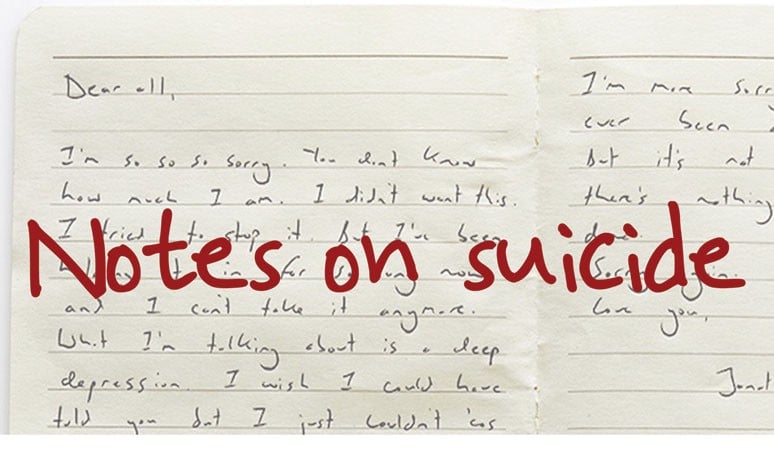 Dear all,
I'm so so so sorry. You don't know
how much I am. I didn't want this.
I tried to stop it. But I've been
it in for so long now
and I can't take it anymore.
What I'm talking about is a deep
depression. I wish I could have
told you but I just couldn't 'cos
I'm more sorr
ever been
But it's not
there's nothing
Sorry again.
Love you,
Jonat
Notes on suicide